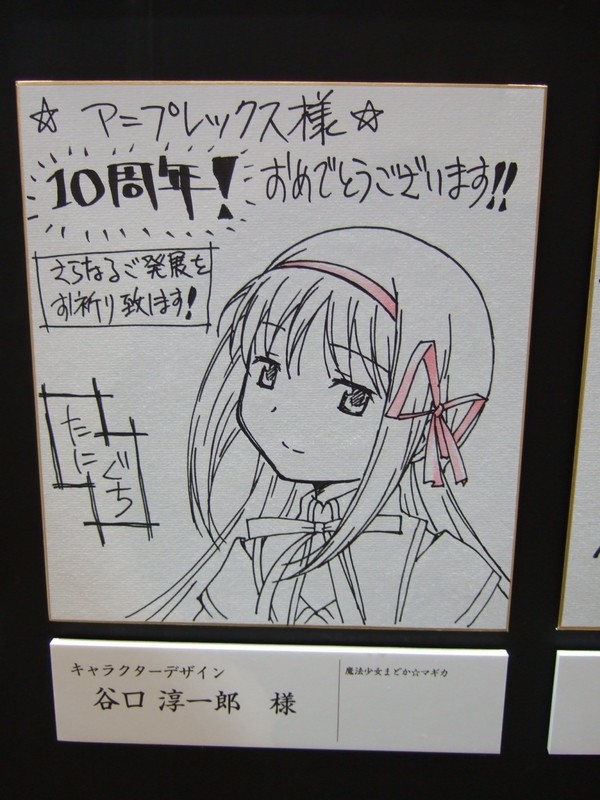 ☆ アニプレックス様 ☆
10周年! おめでとうございます!!
さらなるご発展を
お祈り致します!
たに
ぐち
キャラクターデザイン
谷口 淳一郎 様
魔法少女まどか☆マギカ